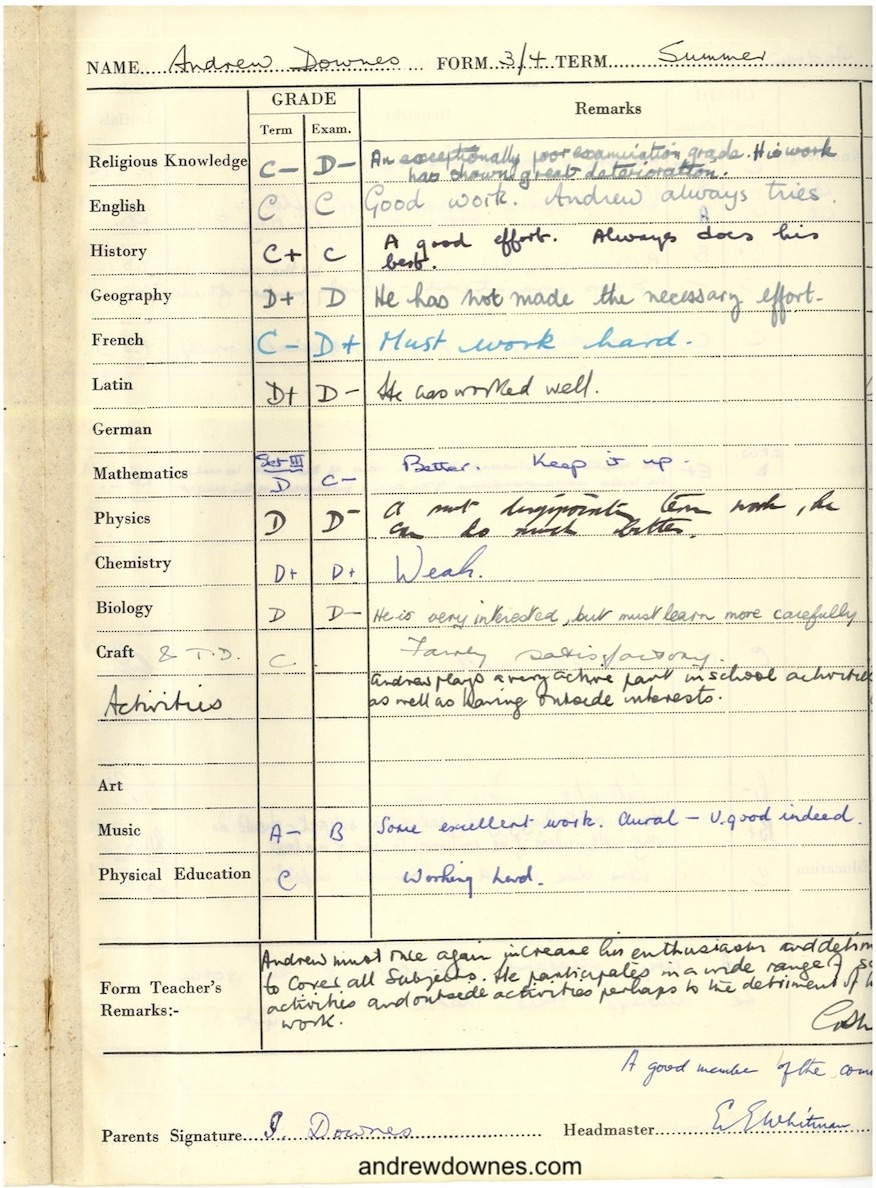 NAME.... Andrew Downes .... FORM.. 3/4 TERM...... Summer
GRADE
Term Exam. Remarks
Religious Knowledge C- D- An exceptionally poor examination grade. His work
has shown great deterioration.
English C C Good work. Andrew always tries.
History C+ C A good effort. Always does his
best.
Geography D+ D He has not made the necessary effort-
French C- D+ Must work hard.
Latin D+ D- He has worked well.
German
Set III
Mathematics D C- Better. Keep it up.
Physics D D- A most disappointing term work, he
can do much better.
Chemistry D+ D+ Weak.
Biology D D- He is very interested, but must learn more carefully
Craft & T.D. C. Fairly satisfactory.
Andrew plays a very active part in school activities
Activities as well as having outside interests.
Art
Music A- B Some excellent work. Aural - V. good indeed.
Physical Education C Working hard.
Andrew must once again increase his enthusiasm and
to cover all Subjects. He participates in a wide range of
Form Teacher's activities and outside activities perhaps to the detriment of
Remarks:- work.
A good member of the
Parents Signature... J. Downes ........ Headmaster...... E E Whitman
andrewdownes.com